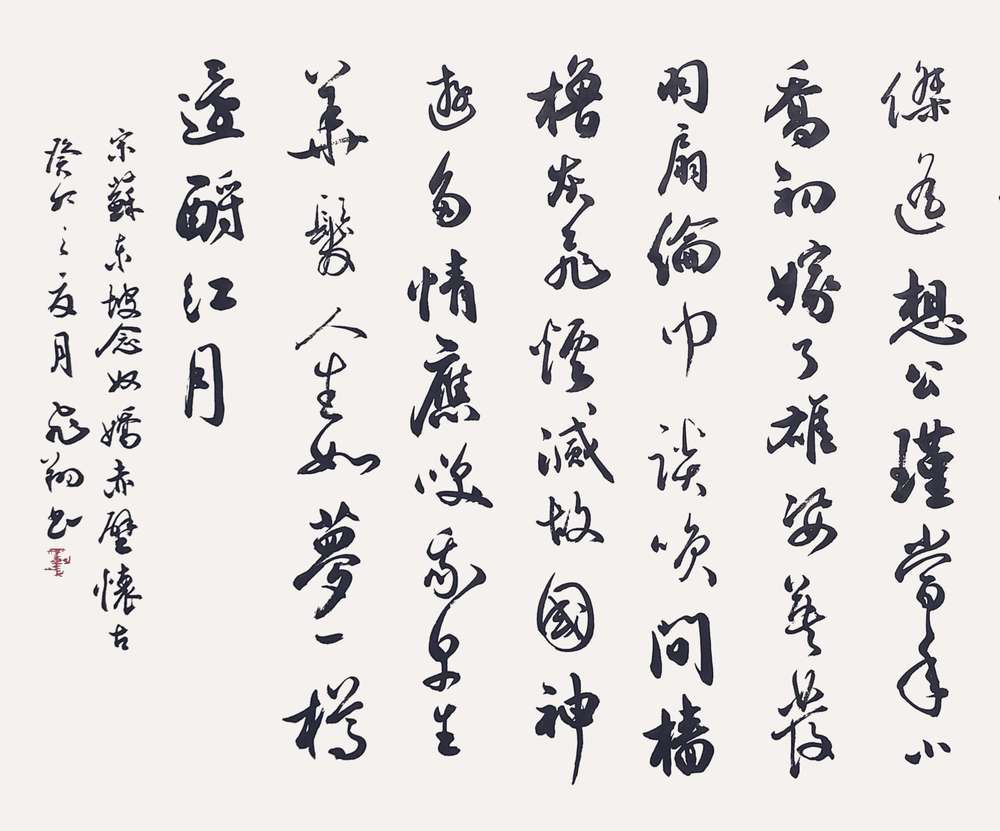 傑遥想公瑾當年小
喬初嫁了雄姿英發
羽扇綸巾談笑間檣
櫓灰飛煙滅故國神
遊多情應笑我早生
華髮人生如夢一樽
還酹江月
宋蘇東坡念奴嬌赤壁懷古
癸卯之夏月飛翔書